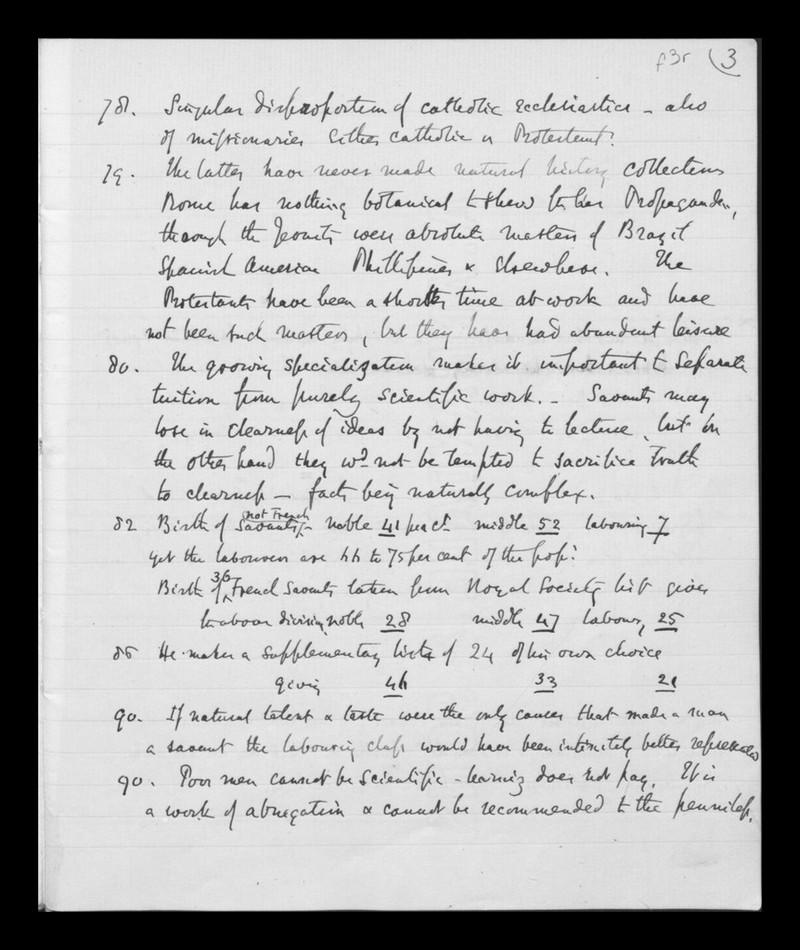 f3r (3
78. Singular disproportion of catholic ecclesiastics – also
of missionaries either catholic or Protestant.
79. The latter have never made natural history collections
Rome has nothing botanical to shew in her Propaganda,
though the Jesuits were absolute masters of Brazil
Spanish America Phillipines & elsewhere. The
Protestants have been a shorter time at work and have
not been such masters, but they have had abundant leisure
80. The growing specialization makes it important to separate
tuition from purely scientific work. – Savants may
lose in clearness of ideas by not having to lecture, but on
the other hand they wd not be tempted to sacrifice truth
to clearness – facts being naturally complex.
82 Birth of not French Savants – noble 41 per ct. middle 52 labouring 7
yet the labourers are 66 to 75 per cent of the pop:
Birth of 36 French Savants taken from Royal Society list gives
the above division, noble 28 middle 47 labour, 25
86 He makes a supplementary list of 24 of his own choice
giving 46 33 21
90. If natural talent & taste were the only causes that made a man
a savant the labouring class would have been infinitely better represented
90. Poor men cannot be scientific – learning does not pay. It is
a work of abnegation & cannot be recommended to the penniless.